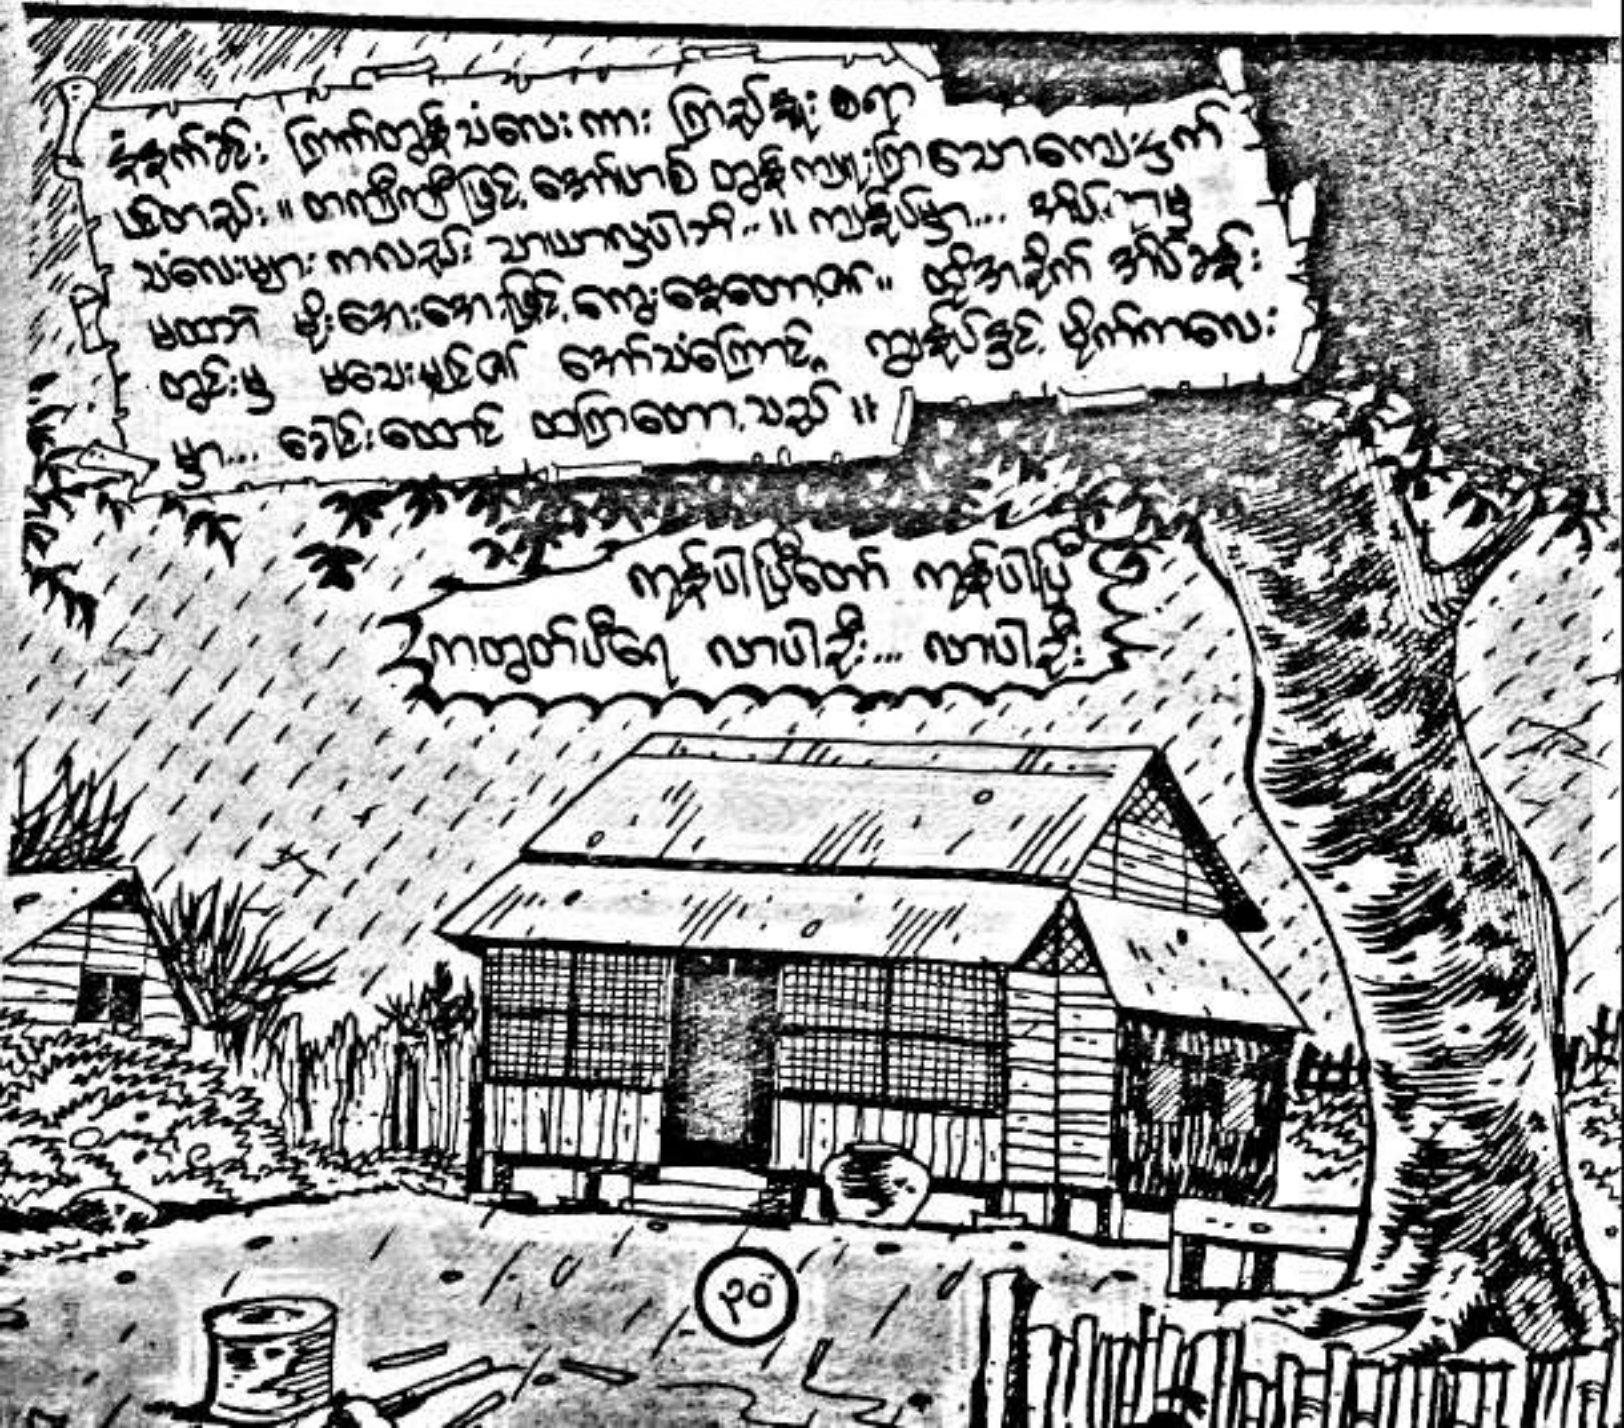 နံနက်ခင်း ကြက်တွန်သံလေးကား ကြည်နူးစရာ
ပင်တည်း။ တကျီကျီဖြင့် အော်ဟစ် တွန်ကျူးကြသောကျေးငှက်
သံလေးများ ကလည်း သာယာလှပါဘိ..။ ကျွန်ုပ်မှာ... အိပ်ရာမှ
မထဘဲ မိုးအေးအေးဖြင့် ကွေးနေတော့၏။ ထိုအခိုက် အိပ်ခန်း
တွင်းမှ မသေးမျှင်၏ အော်သံကြောင့် ကျွန်ုပ်နှင့် မိုက်ကာလေး
မှာ... ခေါင်းထောင် ထကြတော့သည် ။
ကုန်ပါပြီတော် ကုန်ပါပြီ
ကထွတ်ပီရေ လာပါဦး... လာပါဦး
၃၀